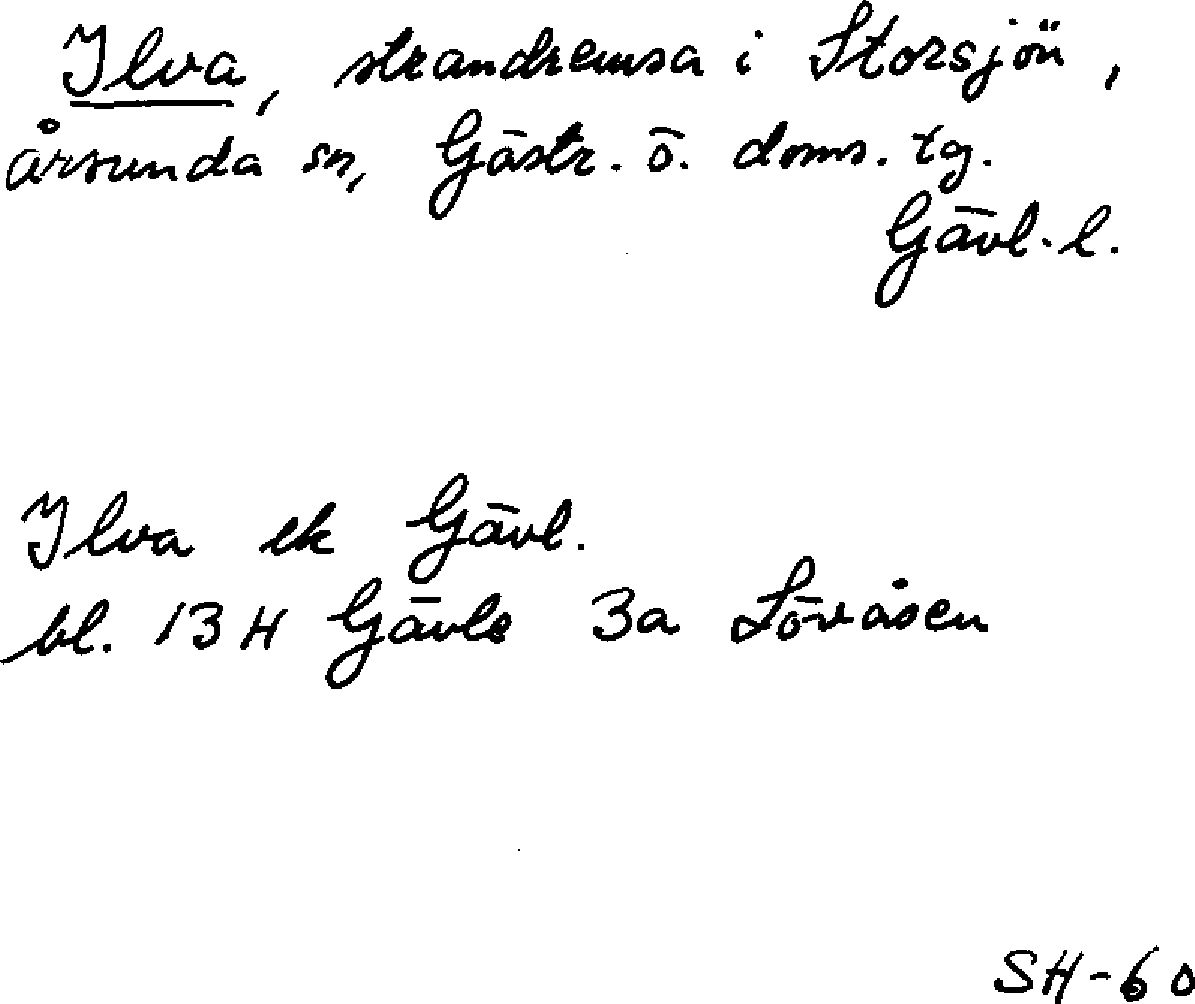 Ilva, strandremsa i Storsjön,
Årsunda sn, Gästr. ö. doms. tg.
Gävl. l.
Ilva ek Gävl.
bl. 13 H Gävle 3a Lövåsen
SH-60